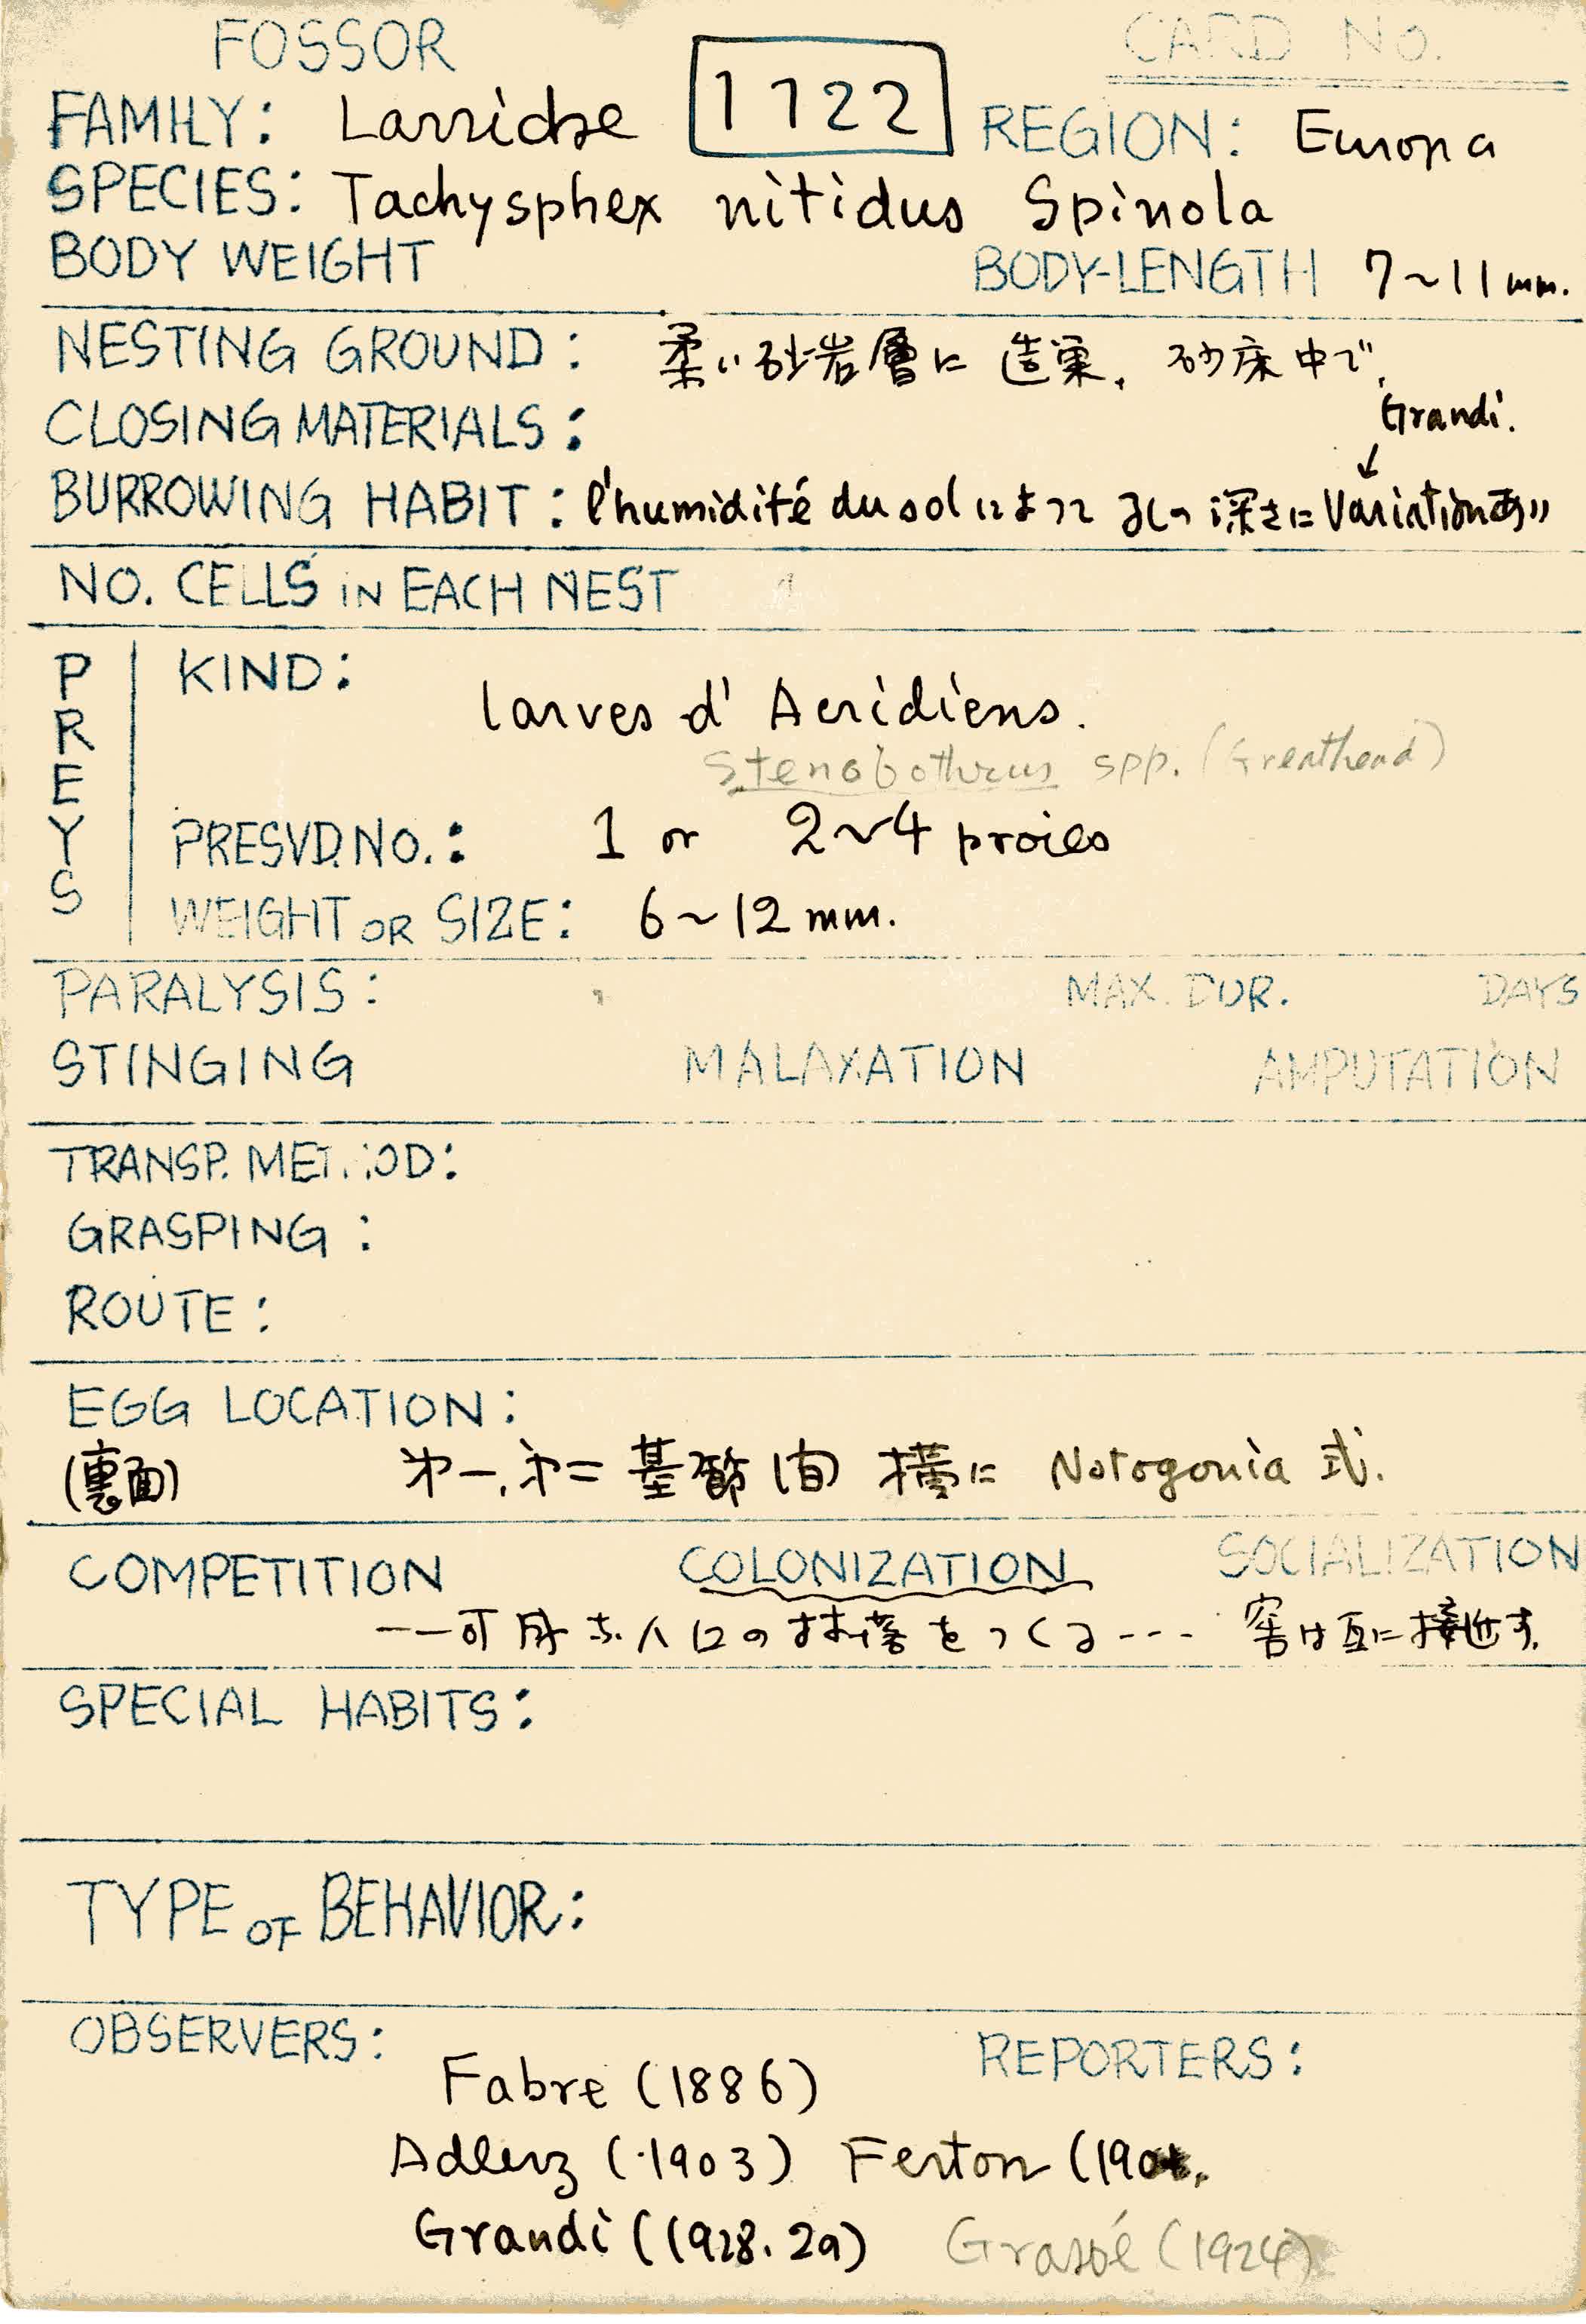 FOSSOR
CARD NO.
1722
FAMILY: Larridae REGION: Europa
SPECIES: Tachysphex nitidus Spinola
BODY WEIGHT BODY-LENGTH 7~11mm.
NESTING GROUND: 柔い砂岩層に造巣, 砂床中で,
CLOSING MATERIALS: Grandi.
↓
BURROWING HABIT: l'humidité du sol によって 孔の深さに Variationあり
NO. CELLS iN EACH NEST
PREYS
KIND: larves d' Acridiens.
Stenobothrus spp. (Greathead)
PRESVD.NO.: 1 or 2~4 proies
WEIGHT OR SIZE: 6~12mm.
PARALYSIS: MAX. DUR. DAYS
STINGING MALAXATION AMPUTATION
TRANSP. METHOD:
GRASPING:
ROUTE:
EGG LOCATION:
(裏面) 才一,才二基節間 横に Notogonia 式.
COMPETITION COLONIZATION SOCIALIZATION
――可成な人口の村落をつくる--- 窖は互に接近す.
SPECIAL HABITS:
TYPE OF BEHAVIOR:
OBSERVERS: REPORTERS:
Fabre (1886)
Adlerz (1903) Ferton (190
Grandi (1928. 29) Grassé (1924)